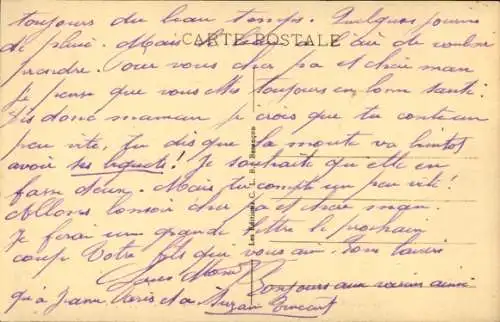 toujours du beau temps. Quelques jours
de pluie. Mais le beau a l'air de vouloir
CARTE POSTALE
prendre. Pour vous cher pa et chère man
je pense que vous êtes toujours en bonne santé.
Dis donc maman je crois que tu comptes un
peu vite, tu dis que la moute va bientot
avoir ses biquets! Je souhaite qu'elle en
fasse deux. Mais tu compte un peu vite!
Allons bonsoir cher pa et chère man.
Je ferai une grande lettre le prochain
coup. Votre fils que vous aime. Bons baisers
Bonjours aux voisins ainsi
qu'à Jeanne
Les Editions C. B. Besançon